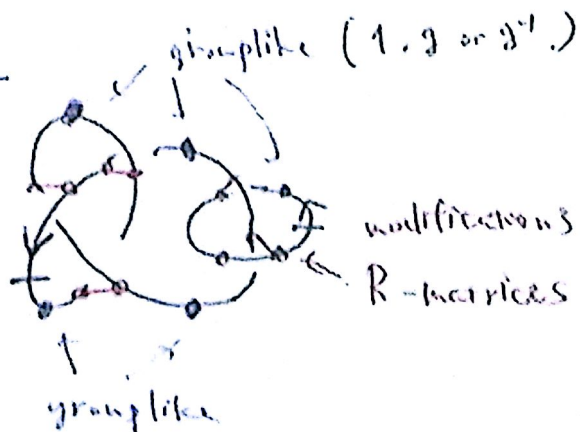 grouplike (1, g or g⁻¹)
modifications
R-matrices
grouplike